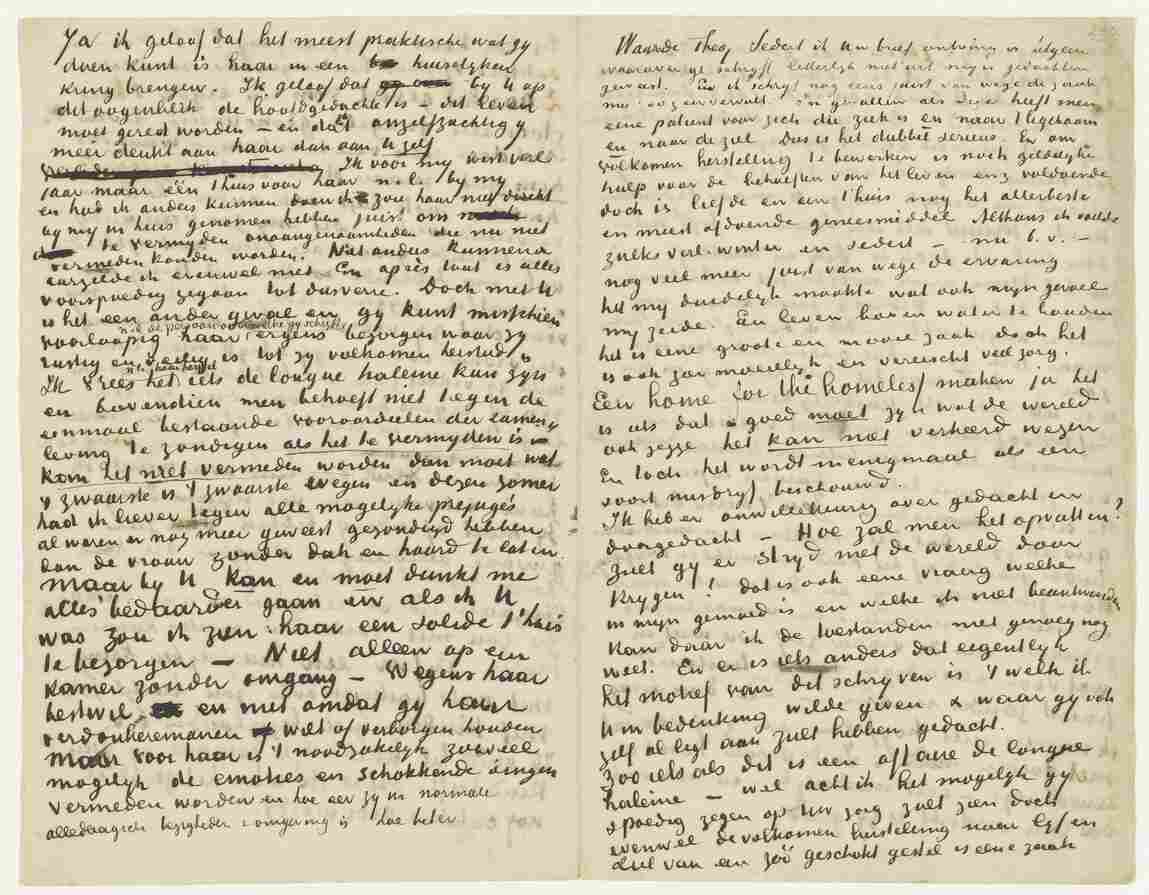 Ja ik geloof dat het meest praktische wat gy
doen kunt is haar in een huiselyken
kring brengen. Ik geloof dat by U op
dit oogenblik de hoofdgedachte is – dit leven
moet gered worden – en dat onzelfzuchtig gy
meer denkt aan haar dan aan U zelf
Ik voor my wist verl.
jaar maar één thuis voor haar n.l. by my
en had ik anders kunnen doen ik zou haar niet direkt
by my in huis genomen hebben juist om
te vermyden onaangenaamheden die nu niet
vermeden konden worden. Niet anders kunnende
aarzelde ik evenwel niet. En après tout is alles
voorspoedig gegaan tot dusverre. Doch met U
is het een ander geval en gy kunt misschien
n.l. de persoon over welke gy schryft
voorloopig haar ergens bezorgen waar zy
rustig en veilig is tot zy volkomen hersteld is
Ik vrees het iets de longue haleine kan zyn
en bovendien men behoeft niet tegen de
eenmaal bestaande vooroordeelen der zamen-
leving te zondigen als het te vermyden is –
kon het niet vermeden worden dan moet wat
't zwaarste is 't zwaarste wegen en dezen zomer
had ik liever tegen alle mogelyke préjugés
al waren er nog meer geweest gezondigd hebben
dan de vrouw zonder dak en haard te laten.
Maar by U kan en moet dunkt me
alles bedaarder gaan en als ik U
was zou ik zien haar een solide t'huis
te bezorgen — Niet alleen op een
kamer zonder omgang – Wegens haar
bestwil en niet omdat gy haar
wilt of verborgen houden
Maar voor haar is 't noodzakelyk zooveel
mogelyk de emoties en schokkende dingen
vermeden worden en hoe eer zy in normale
alledaagsche bezigheden & omgeving is hoe beter
Waarde Theo, Sedert ik Uw brief ontving is 'tgeen
waarover ge schryft letterlyk niet uit myn gedachten
geweest. En ik schryf nog eens juist van wege de zaak
my zoozeer vervult. In gevallen als deze heeft men
eene patient voor zich die ziek is en naar 't ligchaam
en naar de ziel. Dus is het dubbel serieus. En om
volkomen herstelling te bewerken is noch geldelyke
hulp voor de behoeften van het leven enz voldoende
doch is liefde en een t'huis nog het allerbeste
en meest afdoende geneesmiddel. Althans ik voelde
zulks verl. winter en sedert – nu b.v. –
nog veel meer juist van wege de ervaring
het my duidelyk maakte wat ook myn gevoel
my zeide. Een leven boven water te houden
het is eene groote en mooie zaak doch het
is ook zoo moeielyk en vereischt veel zorg.
Een home for the homeless maken ja het
is als dat goed moet zyn wat de wereld
ook zegge het kan niet verkeerd wezen
En toch het wordt menigmaal als een
soort misdryf beschouwd.
Ik heb er onwillekeurig over gedacht en
doorgedacht – Hoe zal men het opvatten?
Zult gy er stryd met de wereld door
krygen! dat is ook eene vraag welke
in myn gemoed is en welke ik niet beantwoorden
kan daar ik de toestanden niet genoeg nog
weet. En er is iets anders dat eigentlyk
het motief van dit schryven is 't welk ik
U in bedenking wilde geven & waar gy ook
zelf al ligt aan zult hebben gedacht.
Zoo iets als dit is een affaire de longue
haleine – wel acht ik het mogelyk gy
spoedig zegen op Uw zorg zult zien doch
evenwel de volkomen herstelling naar lyf en
ziel van een zóó geschokt gestel is eene zaak